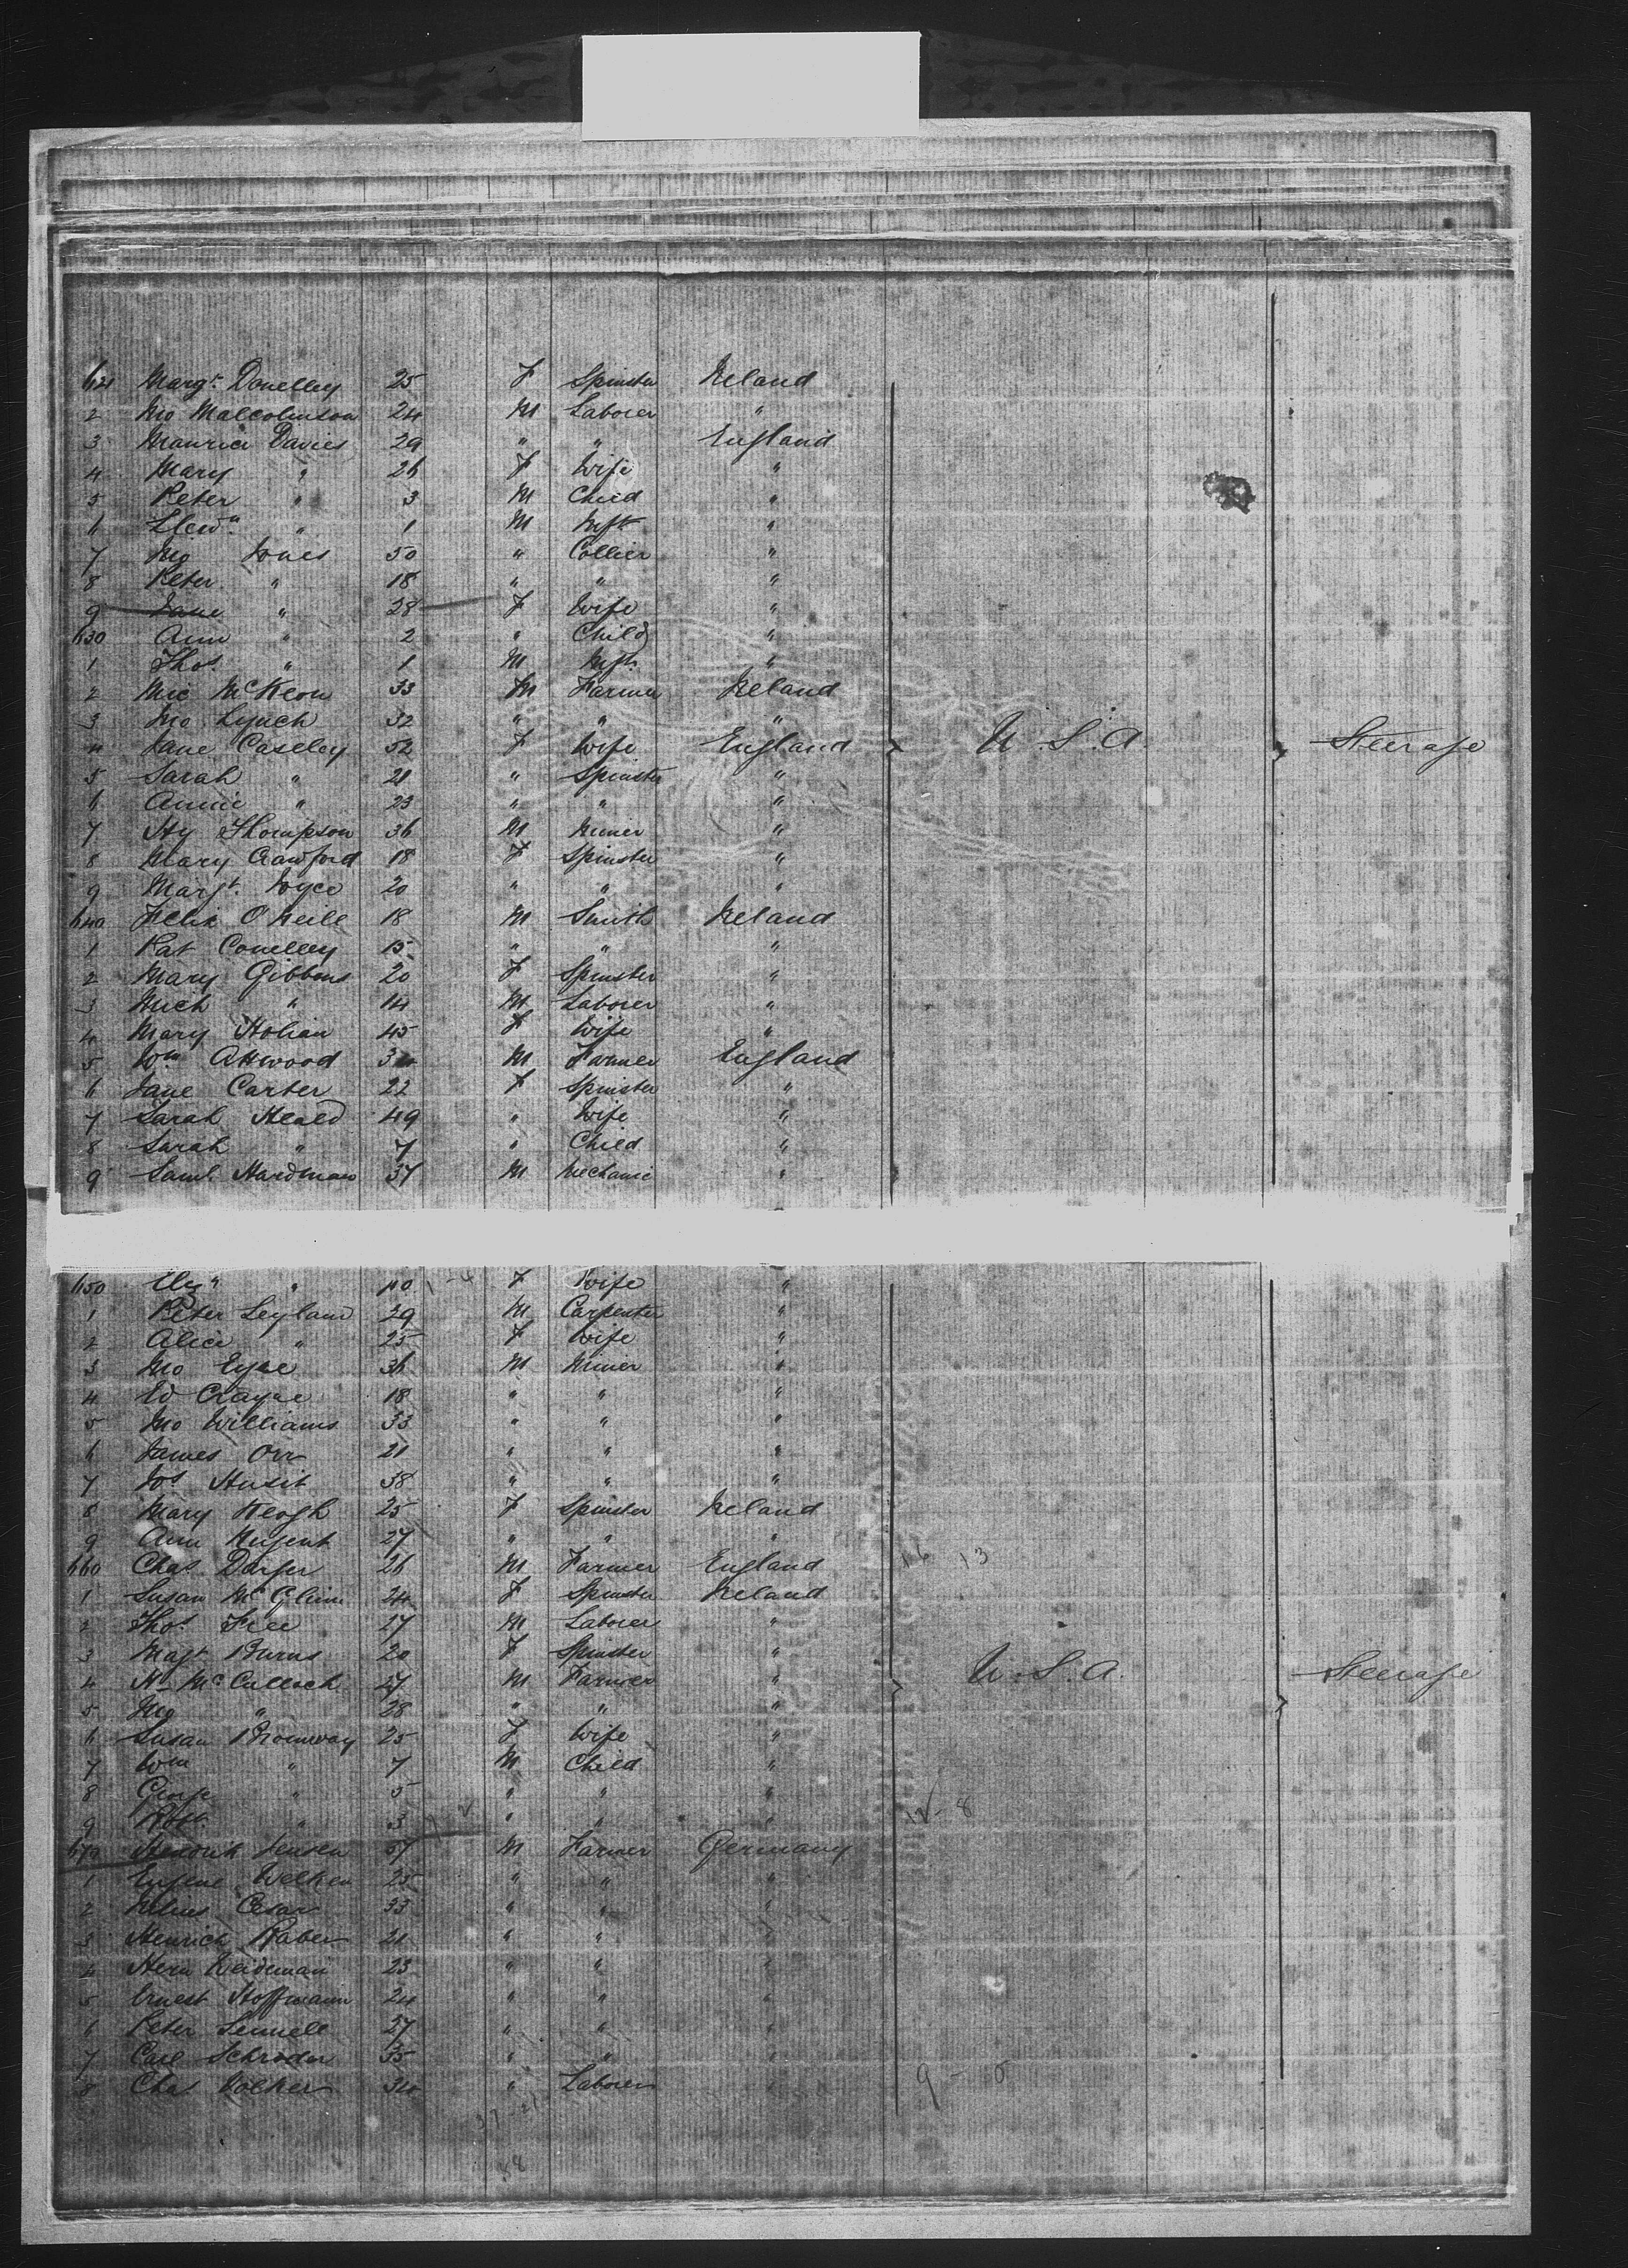 621 Margt. Donelley 25 F Spinster Ireland
2 Jno Malcolmson 24 M Laborer "
3 Maurice Davies 29 " " England
4 Mary " 26 F Wife "
5 Peter " 3 M Child "
6 Llewn. " 1 M Inft "
7 Jno Jones 50 " Collier "
8 Peter " 18 " " "
9 Jane " 28 F Wife "
630 Ann " 2 " Child "
1 Thos. " 1 M Inft. "
2 Mic McKeon 33 M Farmer Ireland
3 Jno Lynch 32 " " "
4 Jane Caseley 52 F Wife England U.S.A. Steerage
5 Sarah " 21 " Spinster "
6 Annie " 23 " " "
7 Hy Thompson 36 M Miner "
8 Mary Crawford 18 F Spinster "
9 Margt. Joyce 20 " " "
640 Felix O'Neill 18 M Smith Ireland
1 Pat Conelley 15 " " "
2 Mary Gibbons 20 F Spinster "
3 Mich " 14 M Laborer "
4 Mary Holian 45 F Wife "
5 Wm Attwood M Farmer England
6 Jane Carter 22 F Spinster "
7 Sarah Heald 49 " Wife "
8 Sarah " 7 " Child "
9 Saml. Hardman 37 M Mechanic "
650 Elzh " 40 F Wife "
1 Peter Leyland 29 M Carpenter "
2 Alice " 25 F Wife "
3 Jno Eyre 36 M Miner "
4 Ed 18 " " "
5 Jno Williams 33 " " "
6 James Orr 21 " " "
7 Jos 38 " " "
8 Mary Keogh 25 F Spinster Ireland
9 Ann Nugent 27 " " "
660 Chas. 26 M Farmer England 13
1 Susan McGlinn 24 F Spinster Ireland
2 Thos. Free 27 M Laborer "
3 Magt. Burns 20 F Spinster "
4 Hy McCulloch 27 M Farmer " U.S.A. Steerage
5 Jno " 28 " " "
6 Susan Bromway 25 F Wife "
7 Wm " 7 M Child "
8 George " 5 " " "
9 Robt. " 3 " " " 8
670 Hendrik Jensen 57 M Farmer Germany
1 Eugene Welken 25 " " "
2 Julius Cesar 33 " " "
3 Heinrich Raber 21 " " "
4 Herm Weideman 23 " " "
5 Ernest Hoffmann 24 " " "
6 Peter Sennell 27 " " "
7 Carl Schroder 35 " " "
8 Chas Volker " Laborer " 9 - 5
37-21